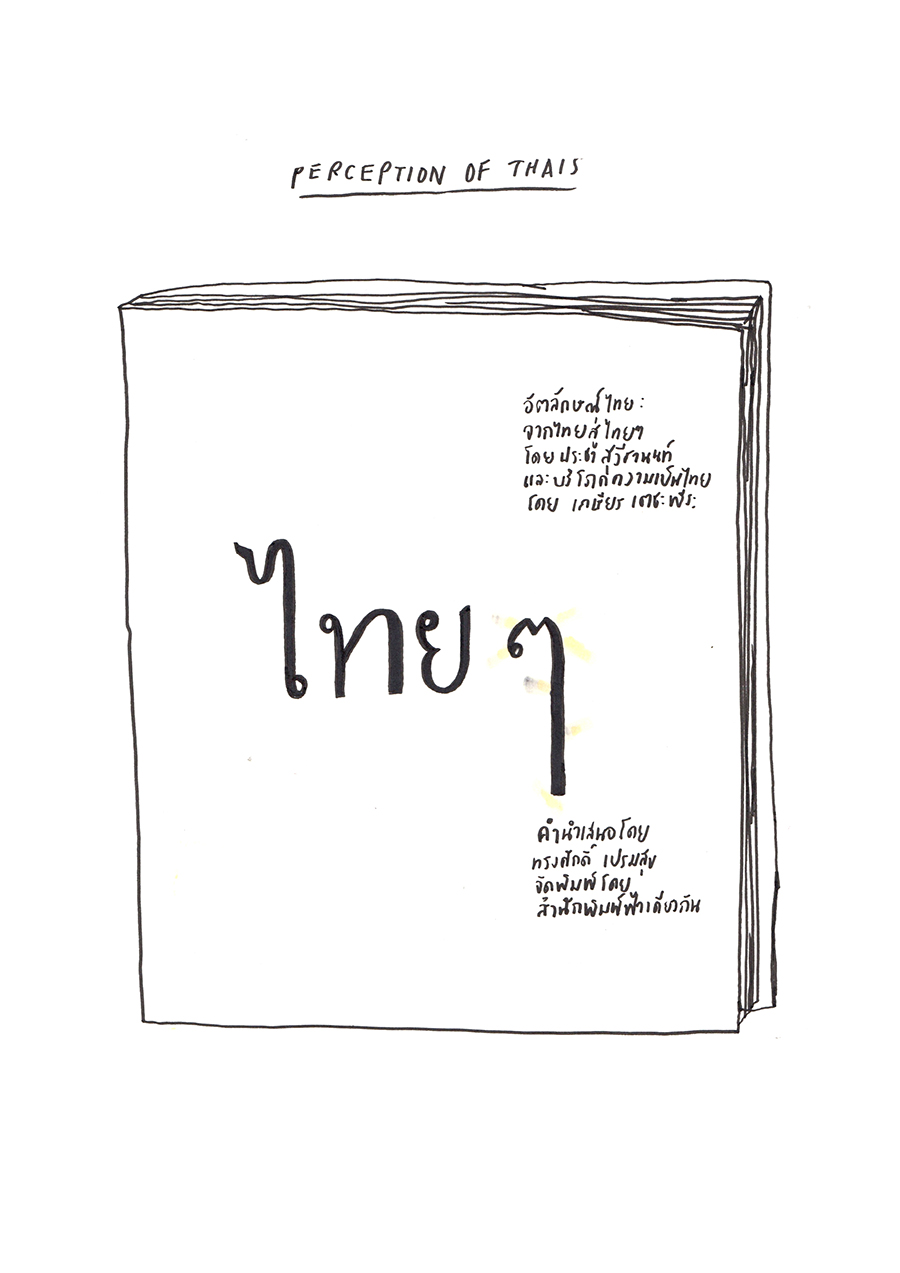 PERCEPTION OF THAIS
อัตลักษณ์ไทย:
จากไทยสู่ไทยๆ
โดย ประชา สุวีรานนท์
และบริโภคความเป็นไทย
โดย เกษียร เตชะพีระ
ไทย ๆ
คำนำเสนอโดย
ทรงศักดิ์ เปรมสุข
จัดพิมพ์โดย
สำนักพิมพ์ฟ้าเดียวกัน